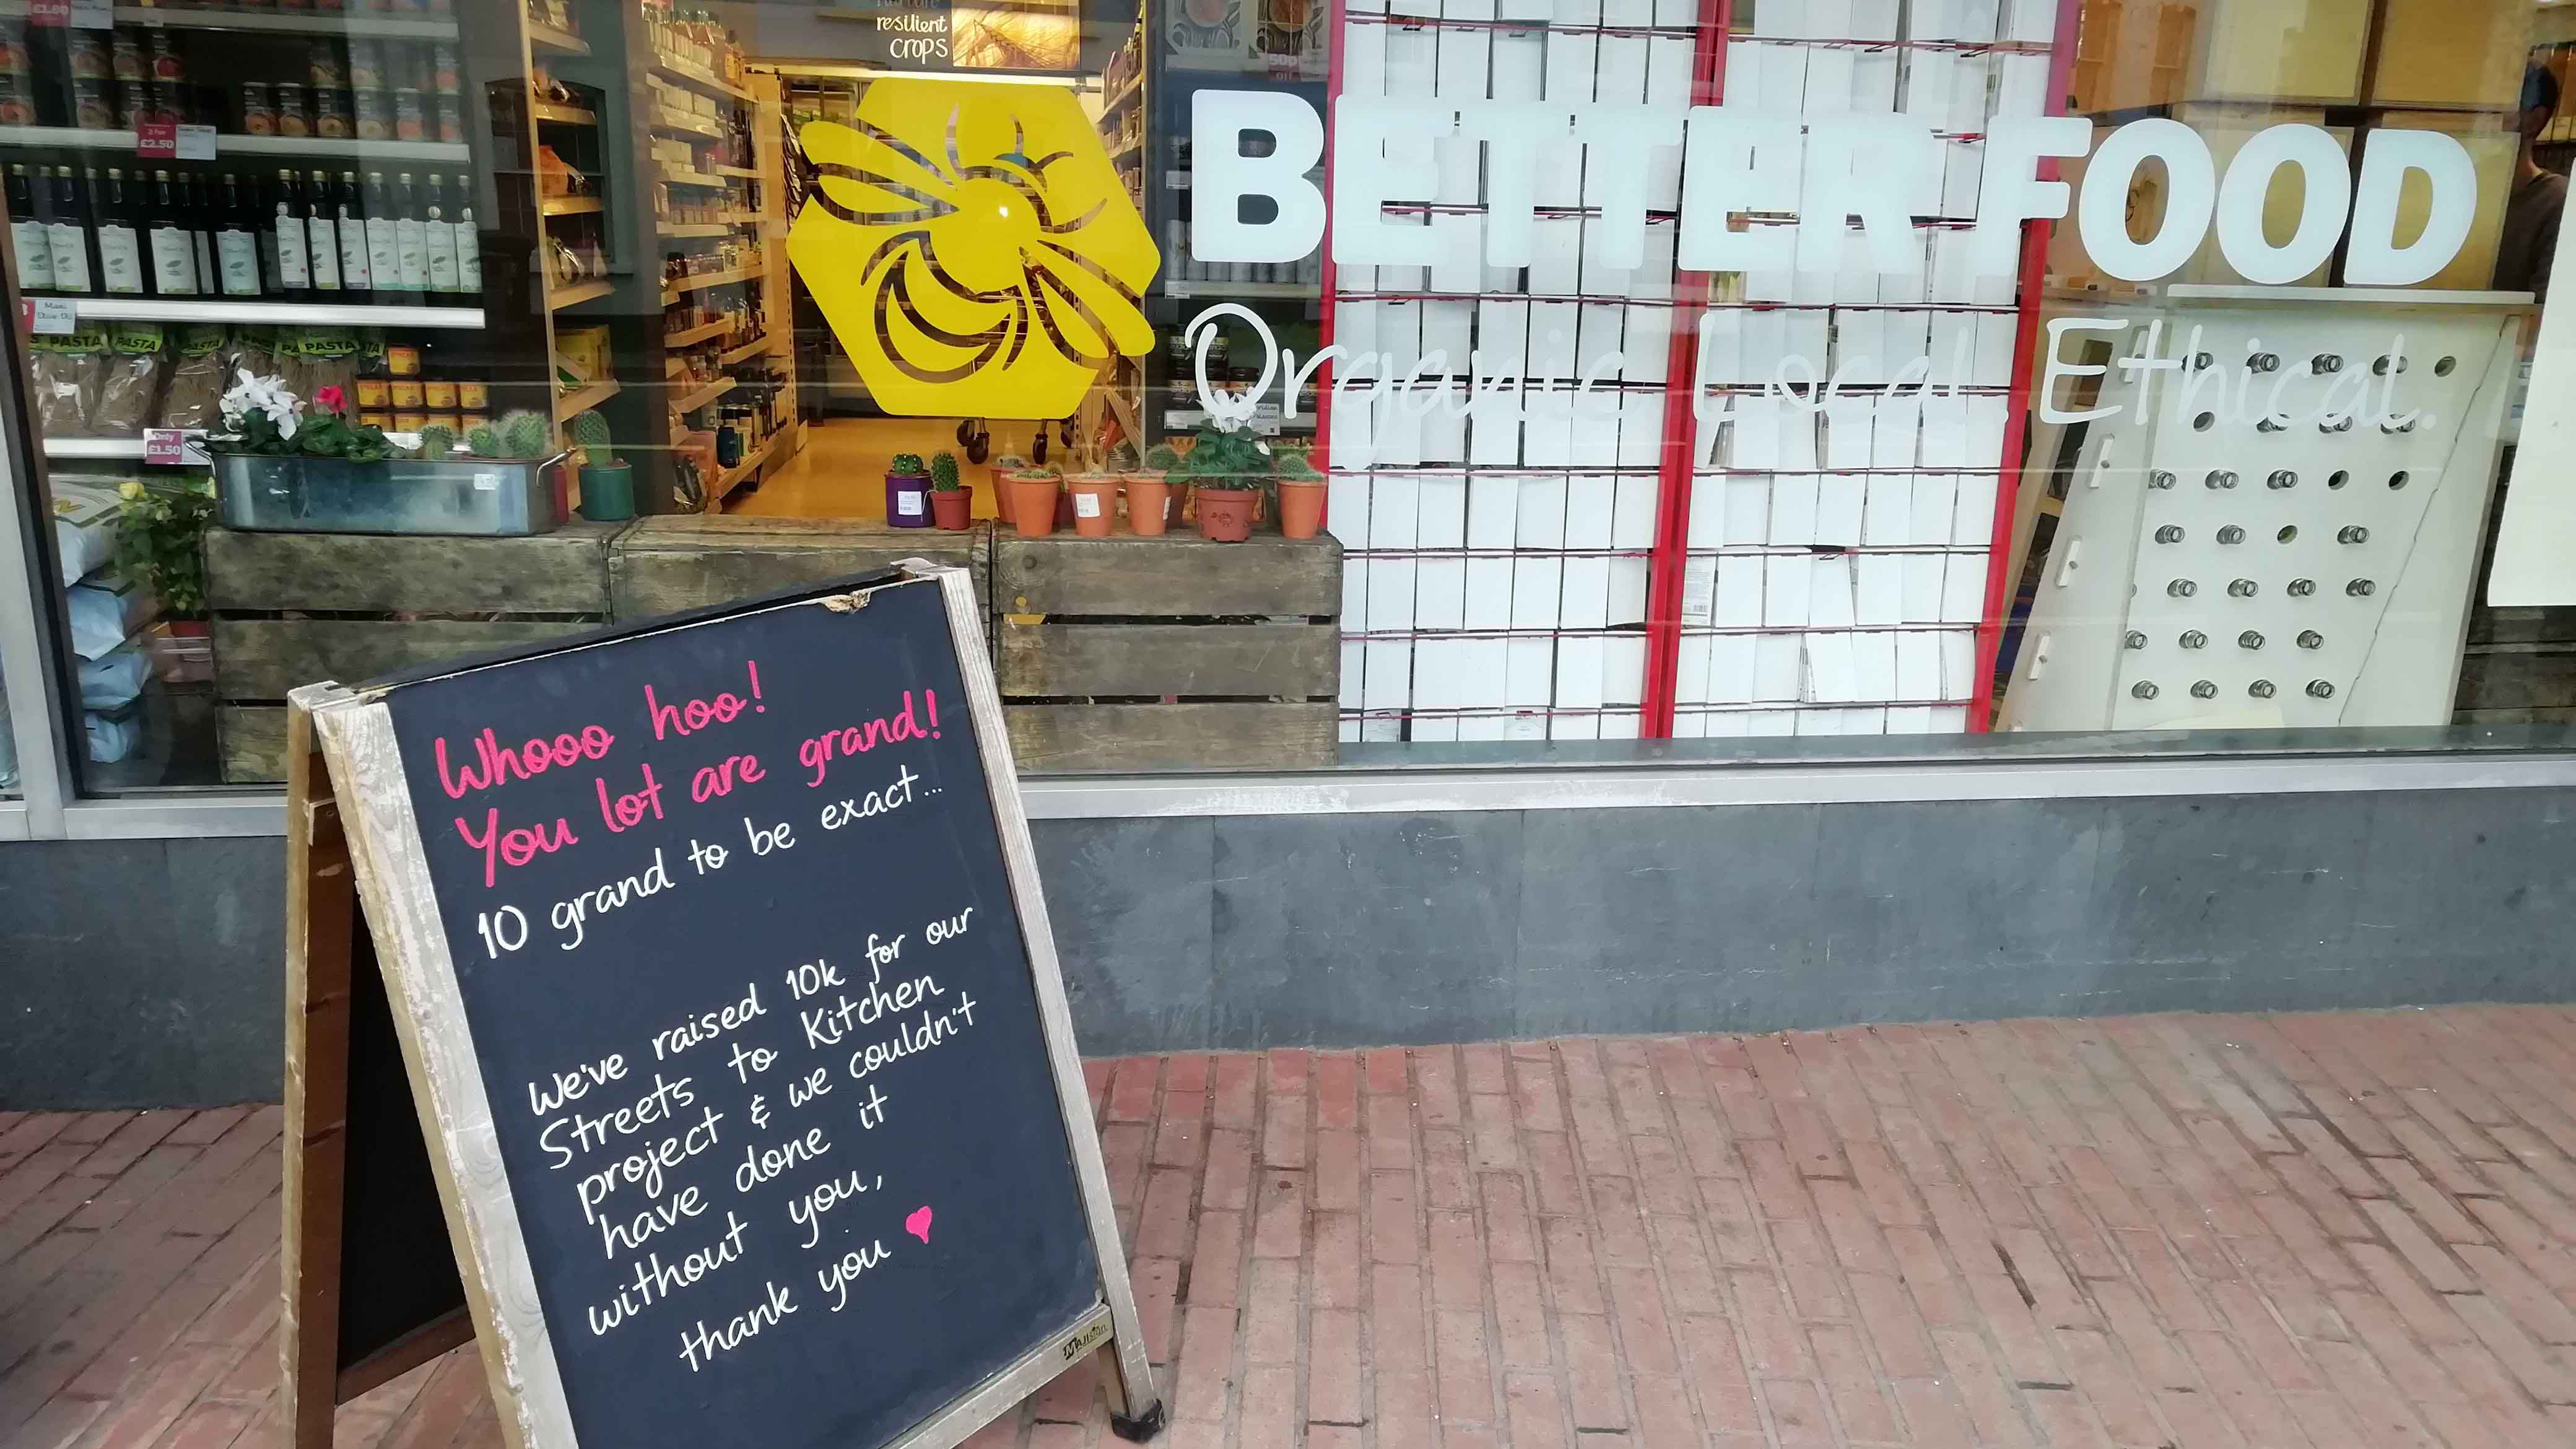 resilient
crops
BETTER FOOD
Organic. Local. Ethical.
£1.60
2 For
£2.50
PASTA
PASTA
PASTA
PASTA
Only
£1.50
50p
Whooo hoo!
You lot are grand!
10 grand to be exact...
We've raised 10k for our
Streets to Kitchen
project & we couldn't
have done it
without you,
thank you
MAJisign